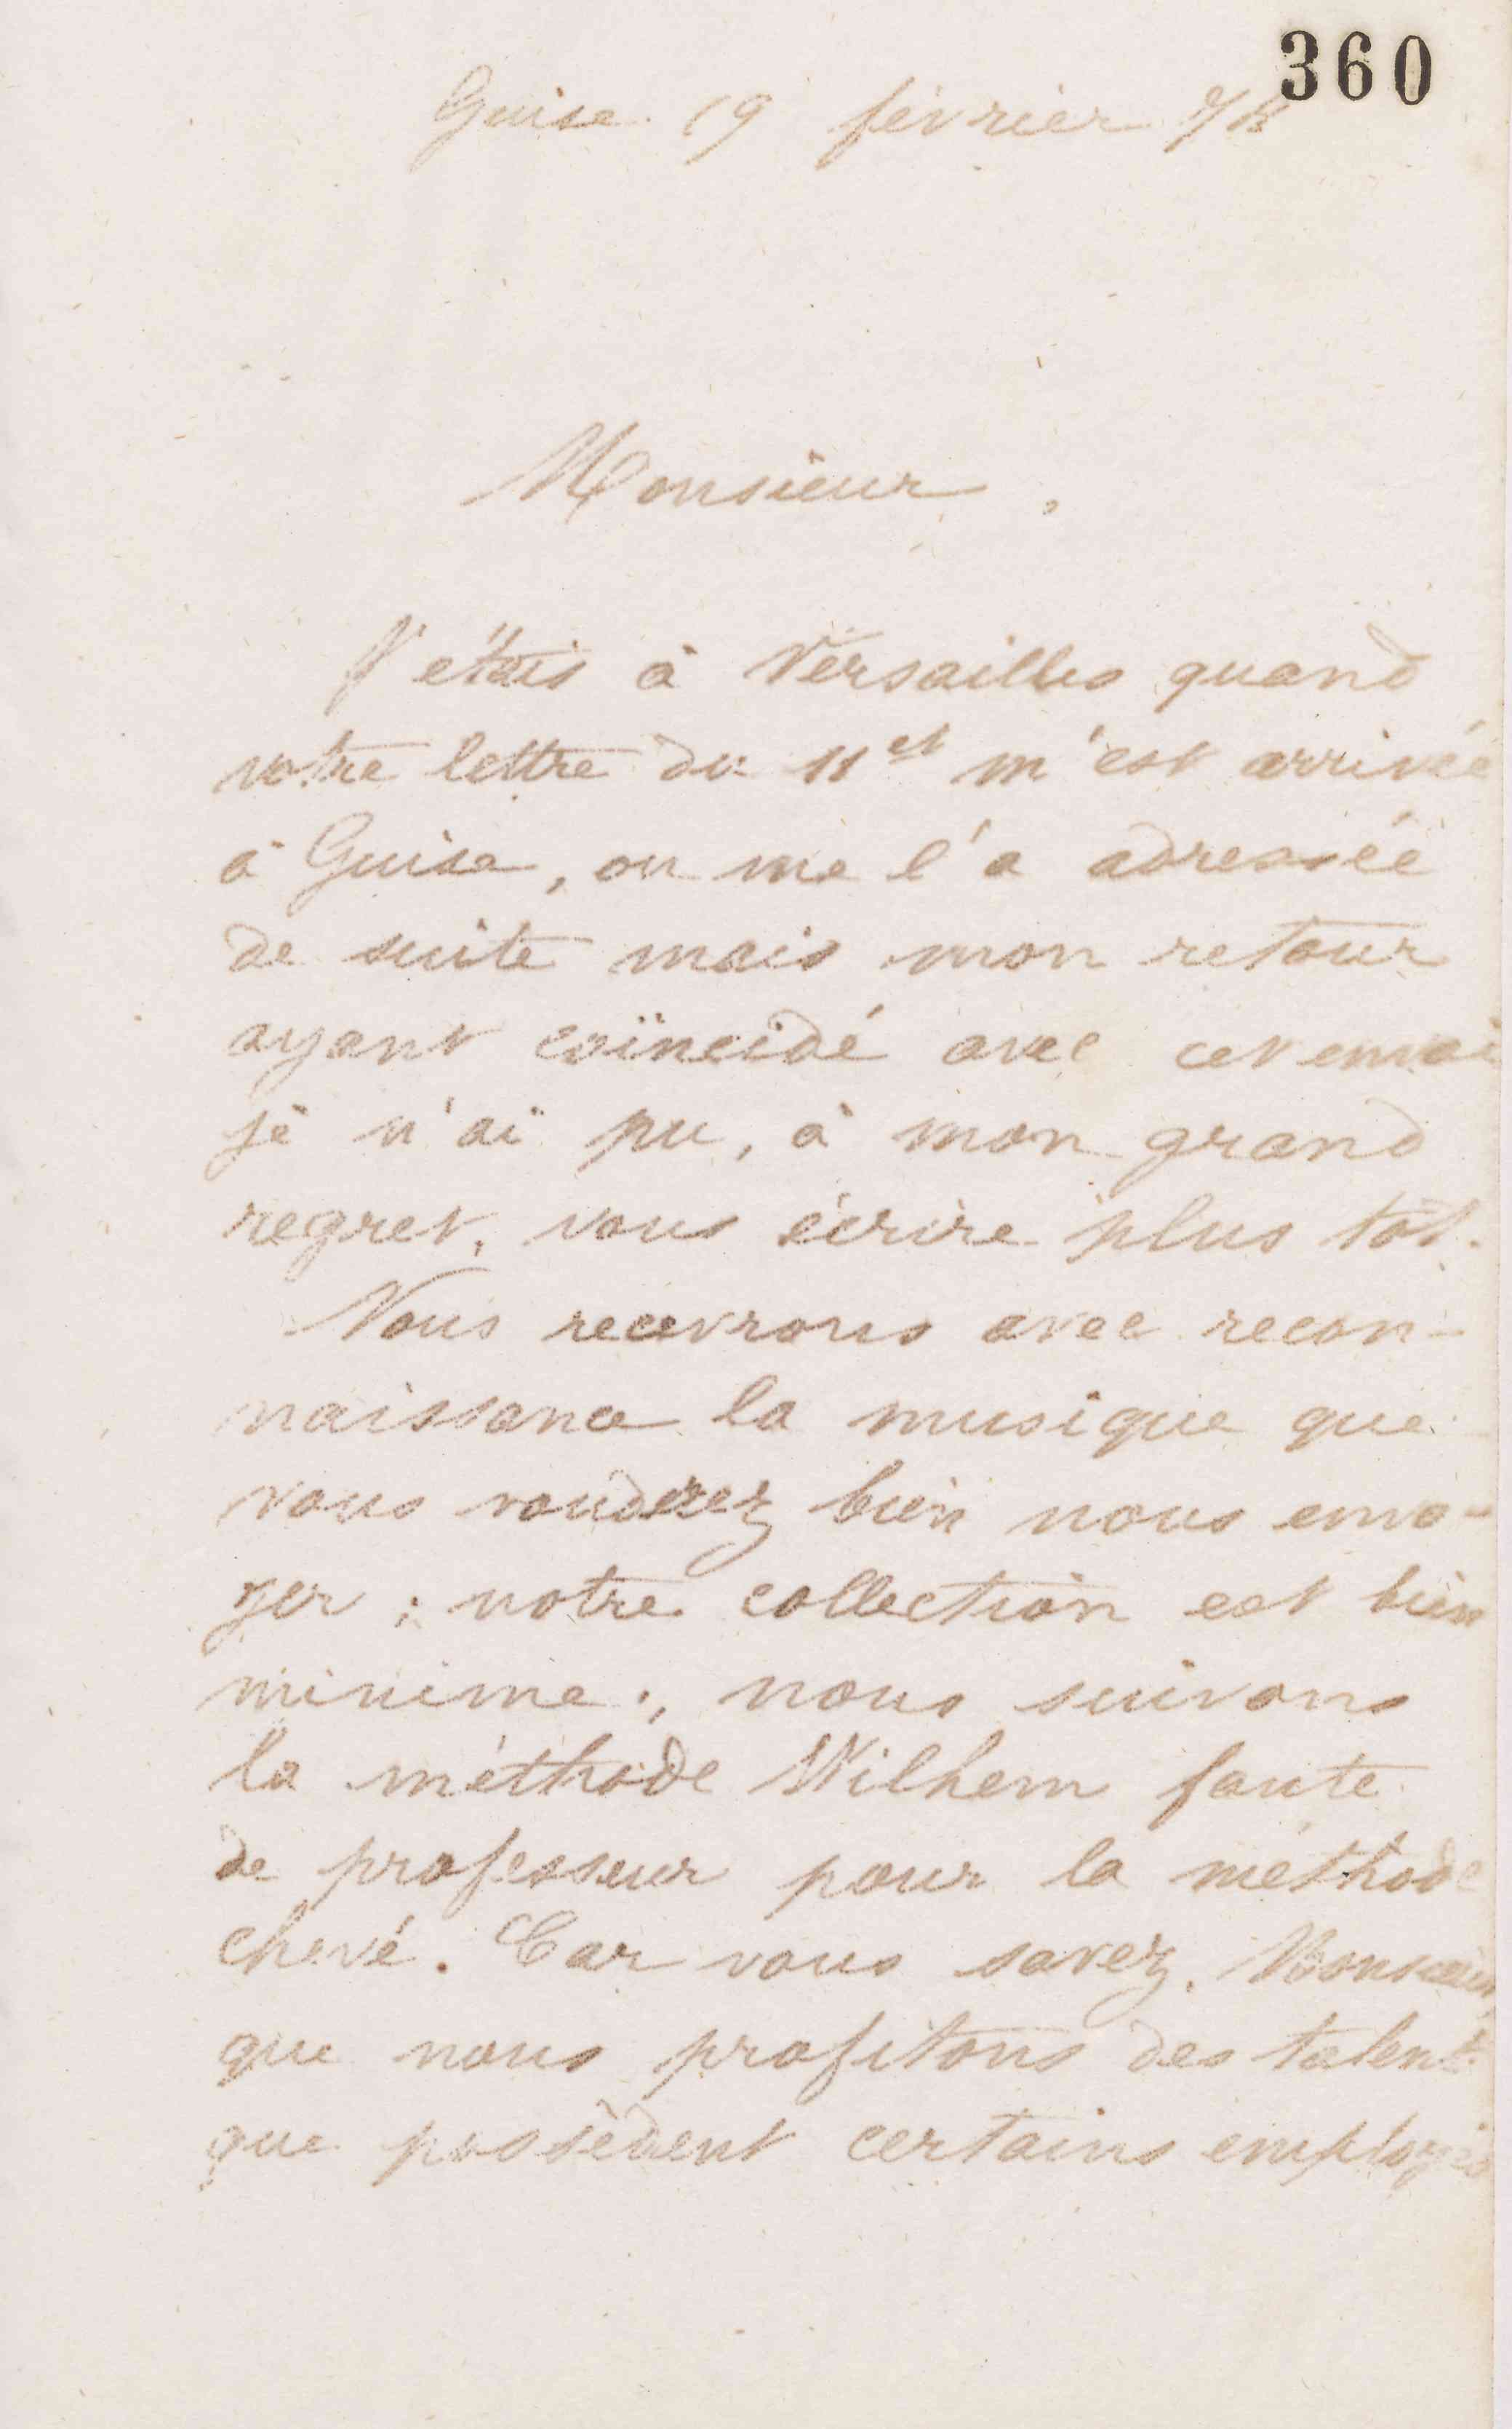 360
Guise 19 février
Monsieur,
J'étais à Versailles quand
votre lettre du 11 et m'est arrivée
à Guise, on me l'a adressée
de suite mais mon retour
ayant coïncidé avec cet envoi
je n'ai pu, à mon grand
regret, vous écrire plus tôt.
Nous recevrons avec recon-
naissance la musique que
vous voudrez bien nous envo-
yer ; notre collection est bien
minime ; nous suivons
la méthode Wilhem faute
de professeur pour la méthode
chevé. Car vous savez, Monsieur,
que nous profitons des talents
que possèdent certains employés